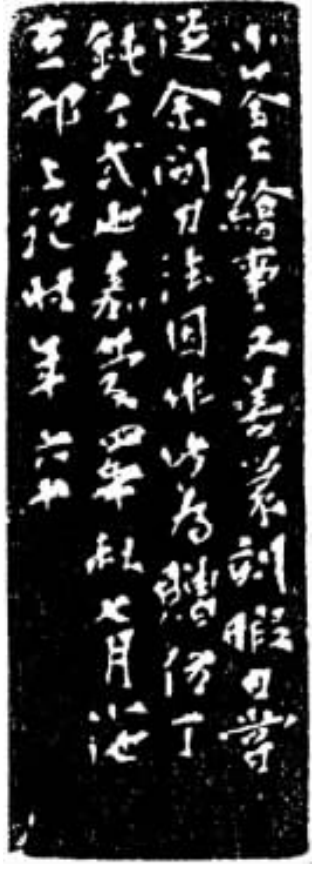 小筌工繪事又善篆刻暇日嘗
從余問刀法因作此為贈仿丁
鈍丁式也嘉慶四年秋七月小池
記時年六十